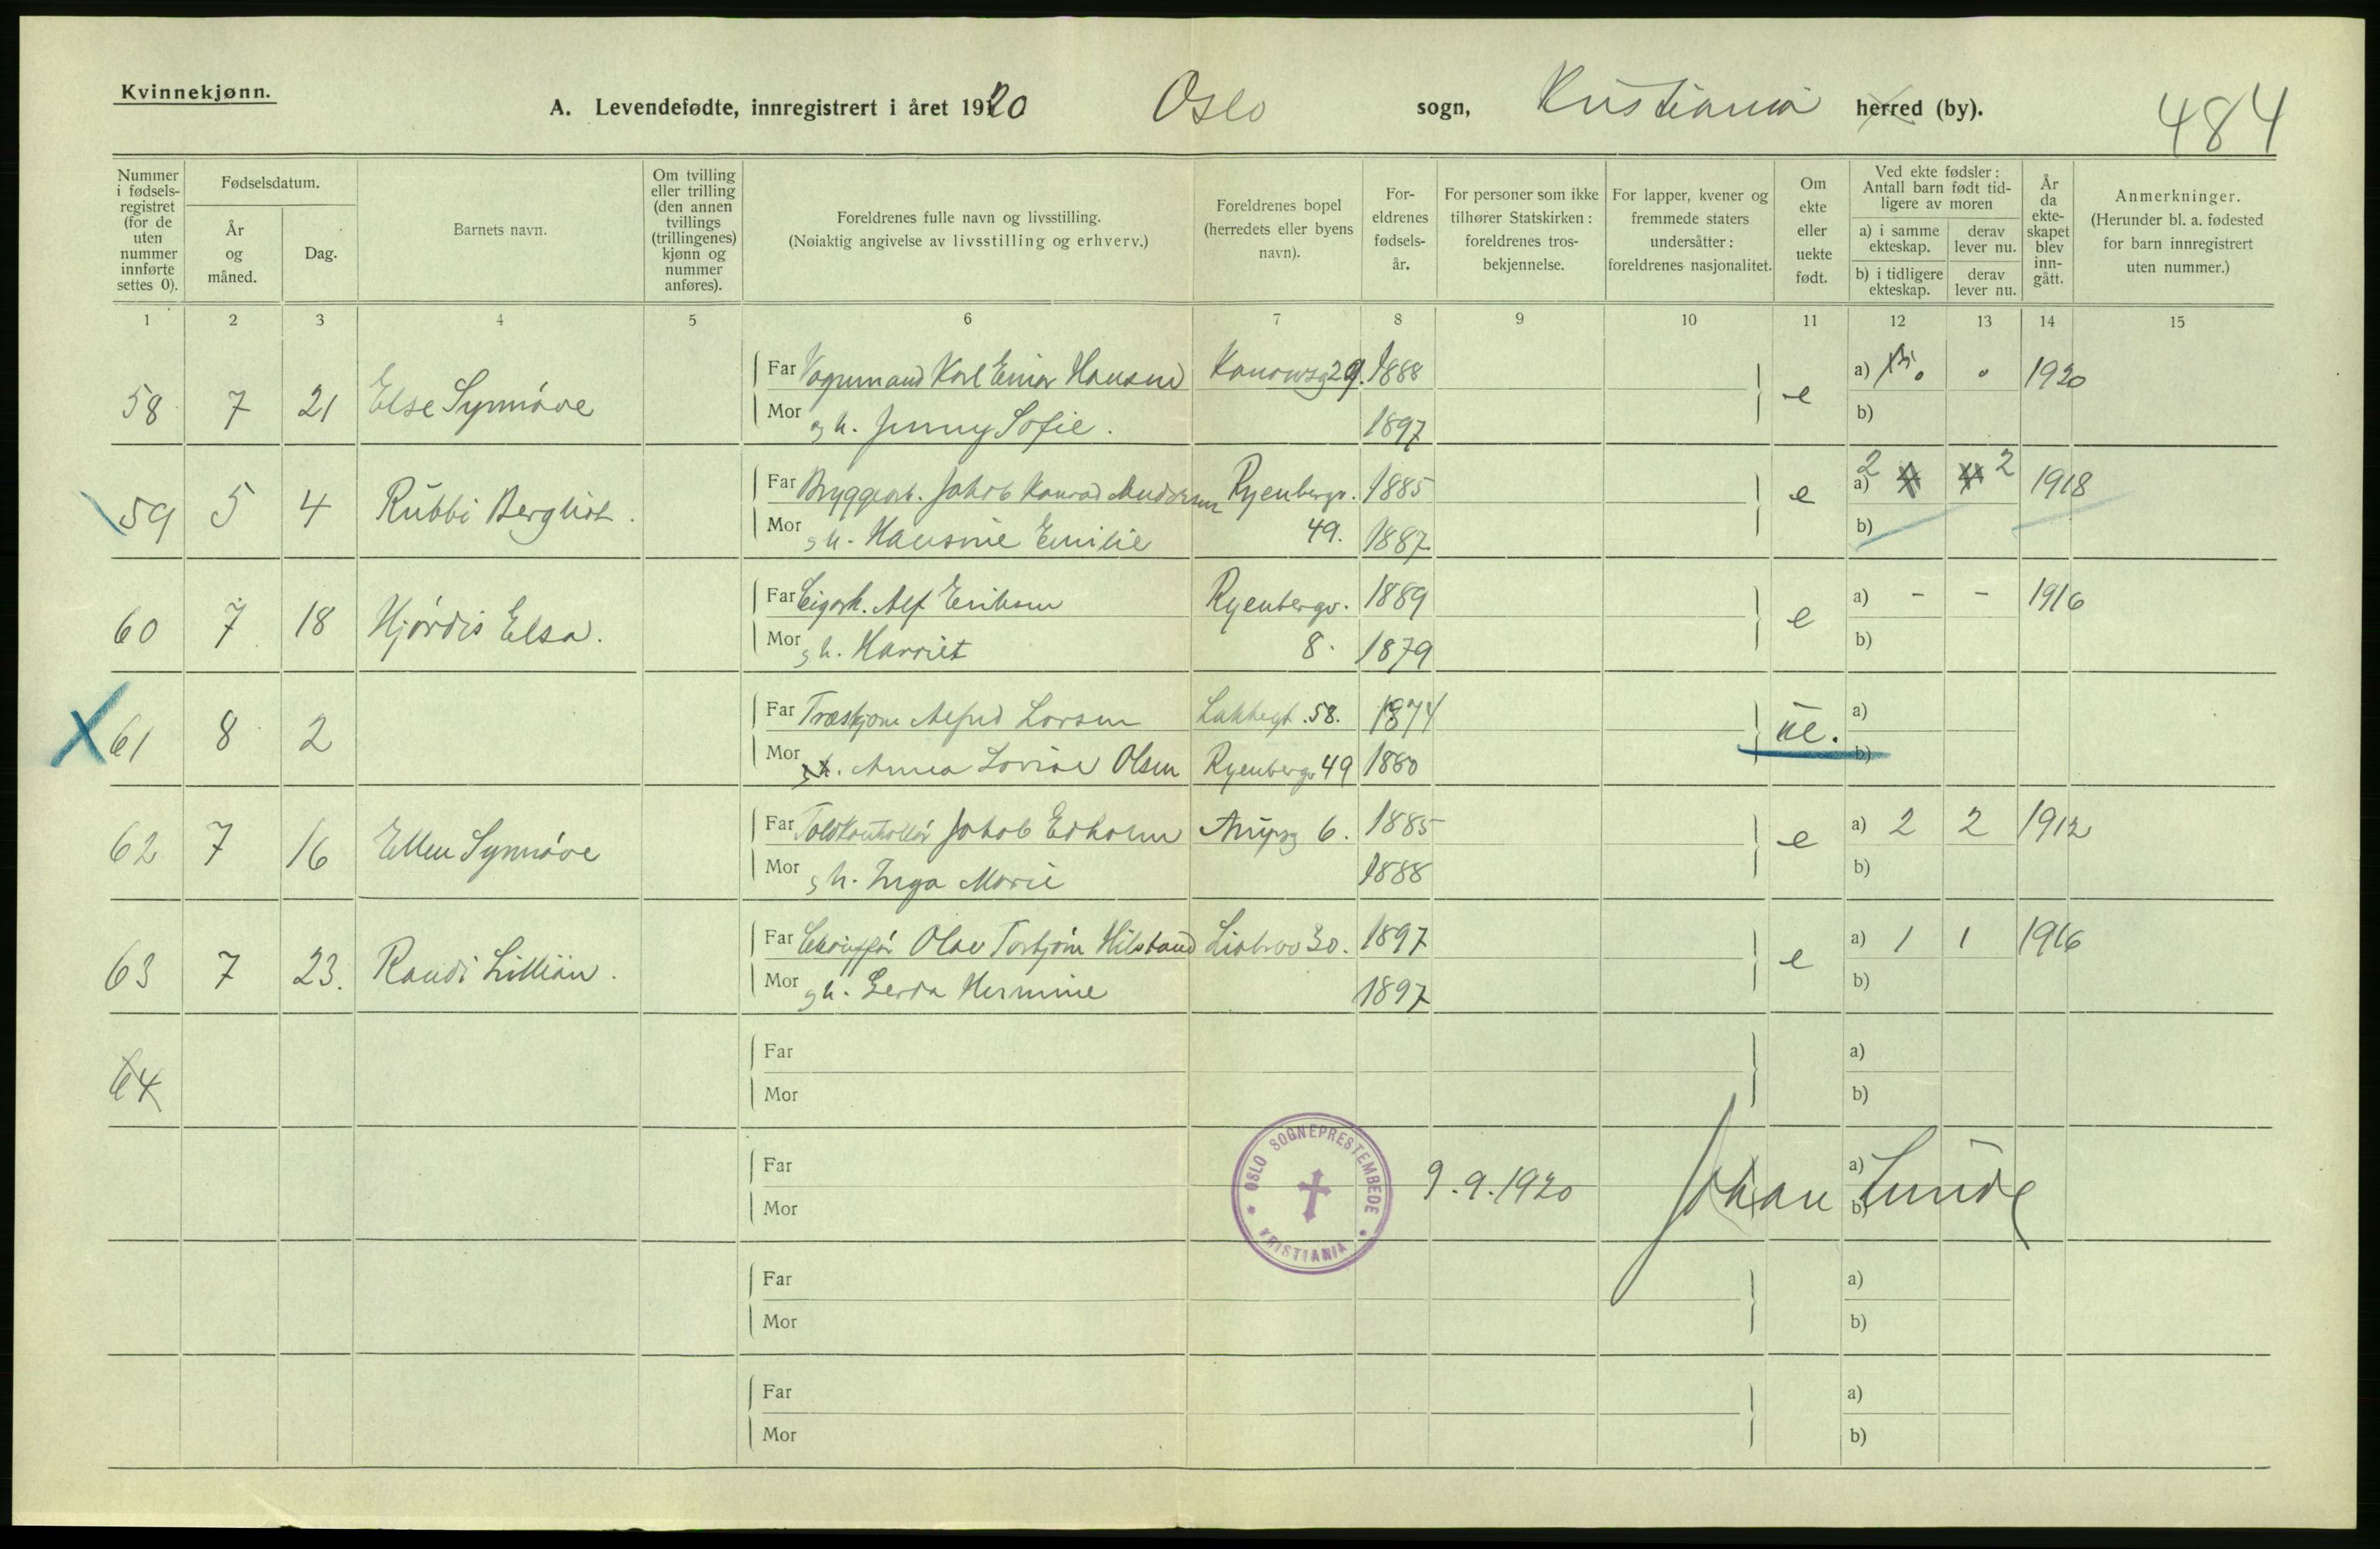 Kvinnekjønn.
A. Levendefødte, innregistrert i året 1920 Oslo sogn, Kristiania herred (by). 484
Nummer i fødselsregistret (for de uten nummer innførte settes 0).
Fødselsdatum.
År og måned.
Dag.
Barnets navn.
Om tvilling eller trilling (den annen tvillings (trillingenes) kjønn og nummer anføres).
Foreldrenes fulle navn og livsstilling.
(Nøiaktig angivelse av livsstilling og erhverv.)
Foreldrenes bopel (herredets eller byens navn).
For-eldrenes fødsels-år.
For personer som ikke tilhører Statskirken: foreldrenes tros-bekjennelse.
For lapper, kvener og fremmede staters undersåtter: foreldrenes nasjonalitet.
Om ekte eller uekte født.
Ved ekte fødsler: Antall barn født tid-ligere av moren
a) i samme ekteskap. derav lever nu.
b) i tidligere ekteskap. derav lever nu.
År da ekte-skapet blev inn-gått.
Anmerkninger.
(Herunder bl. a. fødested for barn innregistrert uten nummer.)
1 2 3 4 5 6 7 8 9 10 11 12 13 14 15
58 7 21 Else Synnöve
Far Vognmand Karl Einar Hansen 29. 1888 e a) 0 0 1920
Mor g h. Jenny Sofie. 1897 b)
59 5 4 Rubbi Bergliot.
Far Bryggearb. Jakob Konrad Andersen Ryenbergv. 1885 e a) 2 4 4 2 1918
Mor g h. Hansine Emilie 49. 1887 b)
60 7 18 Hjördis Elsa.
Far Alf Eriksen Ryenbergv. 1889 e a) - - 1916
Mor g h. Harriet 8. 1879 b)
61 8 2
Far Alfred Larsen Lakkegt. 58. 1874 ue. a)
Mor Anna Lovise Olsen Ryenbergv 49 1880 b)
62 7 16 Ellen Synnöve
Far Toldkontrollör Jakob Edholm Arupsg 6. 1885 e a) 2 2 1912
Mor g h. Inga Marie 1888 b)
63 7 23. Randi Lillian.
Far Chaufför Olav Torbjörn Hilstand Liabrov 30. 1897 e a) 1 1 1916
Mor g h. Gerda Hermine 1897 b)
64
Far a)
Mor b)
Far a)
Mor b)
OSLO SOGNEPRESTEMBEDE * KRISTIANIA *
9.9.1920 Johan Lunde
Far a)
Mor b)
Far a)
Mor b)